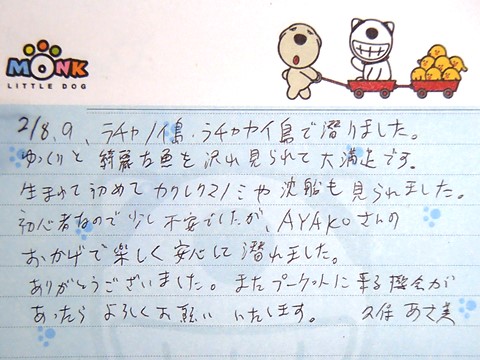 MONK
LITTLE DOG
2/8,9、ラチャノイ島・ラチャヤイ島で潜りました。
ゆっくりと綺麗な魚を沢山見られて大満足です。
生まれて初めてカクレクマノミや沈船も見られました。
初心者なので少し不安でしたが、AYAKOさんの
おかげで楽しく安心して潜れました。
ありがとうございました。またプーケットに来る機会が
あったらよろしくお願いいたします。 久保 あさ美